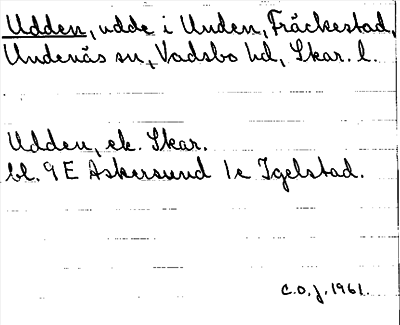 Udden, udde i Unden, Fräckestad,
Undenäs sn, Vadsbo hd, Skar. l.
Udden, ek. Skar.
bl. 9 E Askersund 1e Igelstad.
C.O.J. 1961.